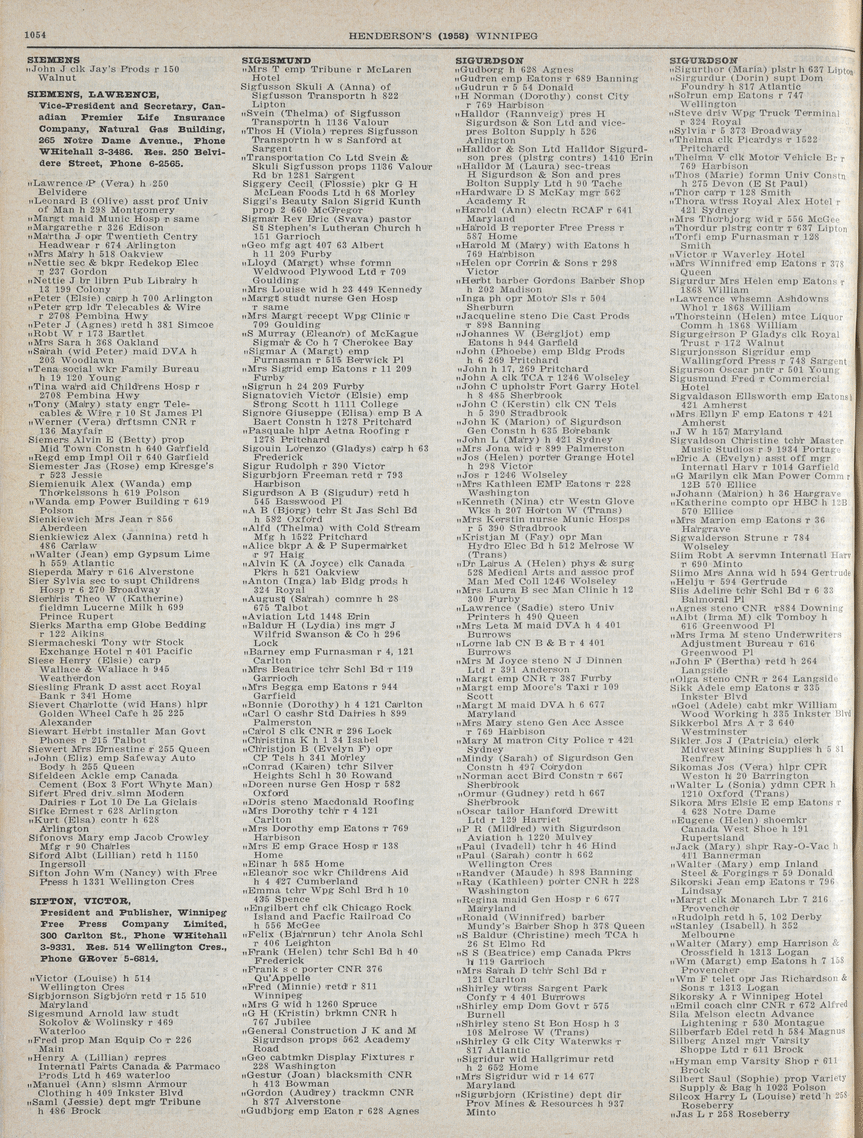 1054
HENDERSON'S (1958) WINNIPEG
SIEMENS
"John J clk Jay's Prods r 150
Walnut
SIEMENS, LAWRENCE,
Vice-President and Secretary, Can-
adian Premier Life Insurance
Company, Natural Gas Building,
265 Notre Dame Avenue, Phone
WHitehall 3-3486. Res. 250 Belvi-
dere Street, Phone 6-2565.
"Lawrence P (Vera) h 250
Belvidere
"Leonard B (Olive) asst prof Univ
of Man h 298 Montgomery
"Margt maid Munic Hosp r same
"Margarethe r 326 Edison
"Martha J opr Twentieth Centry
Headwear r 674 Arlington
"Mrs Mary h 518 Oakview
"Nettie sec & bkpr Redekop Elec
r 237 Gordon
"Nettie J br librn Pub Library h
13 199 Colony
"Peter (Elsie) carp h 700 Arlington
"Peter grp ldr Telecables & Wire
r 2708 Pembina Hwy
"Peter J (Agnes) retd h 381 Simcoe
"Robt W r 173 Bartlet
"Mrs Sara h 368 Oakland
"Sarah (wid Peter) maid DVA h
203 Woodlawn
"Tena social wkr Family Bureau
h 19 120 Young
"Tina ward aid Childrens Hosp r
2708 Pembina Hwy
"Tony (Mary) staty engr Tele-
cables & Wire r 10 St James Pl
"Werner (Vera) drftsmn CNR r
136 Mayfair
Siemers Alvin E (Betty) prop
Mid Town Constn h 640 Garfield
"Regd emp Impl Oil r 640 Garfield
Siemester Jas (Rose) emp Kresge's
r 523 Jessie
Siemieniuk Alex (Wanda) emp
Thorkelssons h 619 Polson
"Wanda emp Power Building r 619
Polson
Sienkiewich Mrs Jean r 856
Aberdeen
Sienkiewicz Alex (Jannina) retd h
486 Carlaw
"Walter (Jean) emp Gypsum Lime
h 559 Atlantic
Sieperda Mary r 616 Alverstone
Sier Sylvia sec to supt Childrens
Hosp r 6 270 Broadway
Sierhris Theo W (Katherine)
fieldmn Lucerne Milk h 699
Prince Rupert
Sierks Martha emp Globe Bedding
r 122 Aikins
Siermacheski Tony wtr Stock
Exchange Hotel r 401 Pacific
Siese Henry (Elsie) carp
Wallace & Wallace h 945
Weatherdon
Siesling Frank D asst acct Royal
Bank r 341 Home
Sievert Charlotte (wid Hans) hlpr
Golden Wheel Cafe h 25 225
Alexander
Siewart Herbt installer Man Govt
Phones r 215 Talbot
Siewert Mrs Ernestine r 255 Queen
"John (Eliz) emp Safeway Auto
Body h 255 Queen
Sifeldeen Ackle emp Canada
Cement (Box 3 Fort Whyte Man)
Sifert Fred driv slmn Modern
Dairies r Lot 10 De La Giclais
Sifke Ernest r 628 Arlington
"Kurt (Elsa) contr h 628
Arlington
Sifonovs Mary emp Jacob Crowley
Mfg r 90 Charles
Siford Albt (Lillian) retd h 1150
Ingersoll
Sifton John Wm (Nancy) with Free
Press h 1331 Wellington Cres
SIFTON, VICTOR,
President and Publisher, Winnipeg
Free Press Company Limited,
300 Carlton St., Phone WHitehall
3-9331. Res. 514 Wellington Cres.,
Phone GRover 5-6814.
"Victor (Louise) h 514
Wellington Cres
Sigbjornson Sigbjorn retd r 15 510
Maryland
Sigesmund Arnold law studt
Sokolov & Wolinsky r 469
Waterloo
"Fred prop Man Equip Co r 226
Main
"Henry A (Lillian) repres
Internatl Parts Canada & Parmaco
Prods Ltd h 469 waterloo
"Manuel (Ann) slsmn Armour
Clothing h 409 Inkster Blvd
"Saml (Jessie) dept mgr Tribune
h 486 Brock
SIGESMUND
"Mrs T emp Tribune r McLaren
Hotel
Sigfusson Skuli A (Anna) of
Sigfusson Transportn h 822
Lipton
"Svein (Thelma) of Sigfusson
Transportn h 1136 Valour
"Thos H (Viola) repres Sigfusson
Transportn h w s Sanford at
Sargent
"Transportation Co Ltd Svein &
Skuli Sigfusson props 1136 Valour
Rd br 1281 Sargent
Siggery Cecil (Flossie) pkr G H
McLean Foods Ltd h 68 Morley
Siggi's Beauty Salon Sigrid Kunth
prop 2 660 McGregor
Sigmar Rev Eric (Svava) pastor
St Stephen's Lutheran Church h
151 Garrioch
"Geo mfg agt 407 63 Albert
h 11 209 Furby
"Lloyd (Margt) whse formn
Weldwood Plywood Ltd r 709
Goulding
"Mrs Louise wid h 23 449 Kennedy
"Margt studt nurse Gen Hosp
r same
"Mrs Margt recept Wpg Clinic r
709 Goulding
"S Murray (Eleanor) of McKague
Sigmar & Co h 7 Cherokee Bay
"Sigmar A (Margt) emp
Furnasman r 515 Berwick Pl
"Mrs Sigrid emp Eatons r 11 209
Furby
"Sigrun h 24 209 Furby
Signatovich Victor (Elsie) emp
Strong Scott h 1111 College
Signore Giuseppe (Elisa) emp B A
Baert Constn h 1278 Pritchard
"Pasquale hlpr Aetna Roofing r
1278 Pritchard
Sigouin Lorenzo (Gladys) carp h 63
Frederick
Sigur Rudolph r 390 Victor
Sigurbjorn Freeman retd r 793
Harbison
Sigurdson A B (Sigudur) retd h
545 Basswood Pl
"A B (Bjorg) tchr St Jas Schl Bd
h 582 Oxford
"Alfd (Thelma) with Cold Stream
Mfg h 1522 Pritchard
"Alice bkpr A & P Supermarket
r 97 Haig
"Alvin K (A Joyce) clk Canada
Pkrs h 521 Oakview
"Anton (Inga) lab Bldg prods h
324 Royal
"August (Sarah) comnre h 28
675 Talbot
"Aviation Ltd 1448 Erin
"Baldur H (Lydia) ins mgr J
Wilfrid Swanson & Co h 296
Lock
"Barney emp Furnasman r 4, 121
Carlton
"Mrs Beatrice tchr Schl Bd r 119
Garrioch
"Mrs Begga emp Eatons r 944
Garfield
"Bonnie (Dorothy) h 4 121 Carlton
"Carl O cashr Std Dairies h 899
Palmerston
"Carol S clk CNR r 296 Lock
"Christina K h 1 34 Isabel
"Christjon B (Evelyn F) opr
CP Tels h 341 Morley
"Conrad (Karen) tchr Silver
Heights Schl h 30 Rowand
"Doreen nurse Gen Hosp r 582
Oxford
"Doris steno Macdonald Roofing
"Mrs Dorothy tchr r 4 121
Carlton
"Mrs Dorothy emp Eatons r 769
Harbison
"Mrs E emp Grace Hosp r 138
Home
"Einar h 585 Home
"Eleanor soc wkr Childrens Aid
h 4 427 Cumberland
"Emma tchr Wpg Schl Brd h 10
435 Spence
"Engilbert chf clk Chicago Rock
Island and Pacfic Railroad Co
h 556 McGee
"Felix (Bjarnrun) tchr Anola Schl
r 406 Leighton
"Frank (Helen) tchr Schl Bd h 40
Frederick
"Frank s c porter CNR 376
Qu'Appelle
"Fred (Minnie) retd r 811
Winnipeg
"Mrs G wid h 1260 Spruce
"G H (Kristin) brkmn CNR h
767 Jubilee
"General Construction J K and M
Sigurdson props 562 Academy
Road
"Geo cabtmkr Display Fixtures r
228 Washington
"Gestur (Joan) blacksmith CNR
h 413 Bowman
"Gordon (Audrey) trackmn CNR
h 877 Alverstone
"Gudbjorg emp Eaton r 628 Agnes
SIGURDSON
"Gudborg h 628 Agnes
"Gudren emp Eatons r 689 Banning
"Gudrun r 5 54 Donald
"H Norman (Dorothy) const City
r 769 Harbison
"Halldor (Rannveig) pres H
Sigurdson & Son Ltd and vice-
pres Bolton Supply h 526
Arlington
"Halldor & Son Ltd Halldor Sigurd-
son pres (plstrg contrs) 1410 Erin
"Halldor M (Laura) sec-treas
H Sigurdson & Son and pres
Bolton Supply Ltd h 90 Tache
"Hardware D S McKay mgr 562
Academy R
"Harold (Ann) electn RCAF r 641
Maryland
"Harold B reporter Free Press r
587 Home
"Harold M (Mary) with Eatons h
769 Harbison
"Helen opr Corrin & Sons r 298
Victor
"Herbt barber Gordons Barber Shop
h 202 Madison
"Inga ph opr Motor Sls r 504
Sherburn
"Jacqueline steno Die Cast Prods
r 898 Banning
"Johannes W (Bergljot) emp
Eatons h 944 Garfield
"John (Phoebe) emp Bldg Prods
h 6 269 Pritchard
"John h 17, 269 Pritchard
"John A clk TCA r 1246 Wolseley
"John C upholstr Fort Garry Hotel
h 8 485 Sherbrook
"John C (Kerstin) clk CN Tels
h 5 390 Stradbrook
"John K (Marion) of Sigurdson
Gen Constn h 635 Borebank
"John L (Mary) h 421 Sydney
"Mrs Jona wid r 899 Palmerston
"Jos (Helen) porter Grange Hotel
h 298 Victor
"Jos r 1246 Wolseley
"Mrs Kathleen EMP Eatons r 228
Washington
"Kenneth (Nina) ctr Westn Glove
Wks h 207 Horton W (Trans)
"Mrs Kerstin nurse Munic Hosps
r 5 390 Stradbrook
"Kristjan M (Fay) opr Man
Hydro Elec Bd h 512 Melrose W
(Trans)
"Dr Larus A (Helen) phys & surg
528 Medical Arts and assoc prof
Man Med Coll 1246 Wolseley
"Mrs Laura B sec Man Clinic h 12
300 Furby
"Lawrence (Sadie) stero Univ
Printers h 490 Queen
"Mrs Leta M maid DVA h 4 401
Burrows
"Lorne lab CN B & B r 4 401
Burrows
"Mrs M Joyce steno N J Dinnen
Ltd r 391 Anderson
"Margt emp CNR r 387 Furby
"Margt emp Moore's Taxi r 109
Scott
"Margt M maid DVA h 6 677
Maryland
"Mrs Mary steno Gen Acc Assce
r 769 Harbison
"Mary M matron City Police r 421
Sydney
"Mindy (Sarah) of Sigurdson Gen
Constn h 497 Corydon
"Norman acct Bird Constn r 667
Sherbrook
"Ormur (Gudney) retd h 667
Sherbrook
"Oscar tailor Hanford Drewitt
Ltd r 129 Harriet
"P R (Mildred) with Sigurdson
Aviation h 1220 Mulvey
"Paul (Ivadell) tchr h 46 Hind
"Paul (Sarah) contr h 662
Wellington Cres
"Randver (Maude) h 898 Banning
"Ray (Kathleen) porter CNR h 228
Washington
"Regina maid Gen Hosp r 6 677
Maryland
"Ronald (Winnifred) barber
Mundy's Barber Shop h 378 Queen
"S Baldur (Christine) mech TCA h
26 St Elmo Rd
"S S (Beatrice) emp Canada Pkrs
h 119 Garrioch
"Mrs Sarah D tchr Schl Bd r
121 Carlton
"Shirley wtrss Sargent Park
Confy r 4 401 Burrows
"Shirley emp Dom Govt r 575
Burnell
"Shirley steno St Bon Hosp h 3
108 Melrose W (Trans)
"Shirley G clk City Waterwks r
817 Atlantic
"Sigridur wid Hallgrimur retd
h 2 652 Home
"Mrs Sigridur wid r 14 677
Maryland
"Sigurbjorn (Kristine) dept dir
Prov Mines & Resources h 937
Minto
SIGURDSON
"Sigurthor (Maria) plstr h 637 Lipton
"Sirgurdur (Dorin) supt Dom
Foundry h 817 Atlantic
"Solrun emp Eatons r 747
Wellington
"Steve driv Wpg Truck Terminal
r 324 Royal
"Sylvia r 5 373 Broadway
"Thelma clk Picardys r 1522
Pritchard
"Thelma V clk Motor Vehicle Br r
769 Harbison
"Thos (Marie) formn Univ Constn
h 275 Devon (E St Paul)
"Thor carp r 128 Smith
"Thora wtrss Royal Alex Hotel r
421 Sydney
"Mrs Thorbjorg wid r 556 McGee
"Thordur plstrg contr r 637 Lipton
"Torfi emp Furnasman r 128
Smith
"Victor r Waverley Hotel
"Mrs Winnifred emp Eatons r 378
Queen
Sigurdur Mrs Helen emp Eatons r
1868 William
"Lawrence whsemn Ashdowns
Whol r 1868 William
"Thorsteinn (Helen) mtce Liquor
Comn h 1868 William
Sigurgeirson P Gladys clk Royal
Trust r 172 Walnut
Sigurjonsson Sigridur emp
Wallingford Press r 748 Sargent
Sigurson Oscar pntr r 501 Young
Sigusmund Fred r Commercial
Hotel
Sigvaldason Ellsworth emp Eatons
421 Amherst
"Mrs Ellyn F emp Eatons r 421
Amherst
"J W h 157 Maryland
Sigvaldson Christine tchr Master
Music Studios r 9 1934 Portage
"Eric A (Evelyn) asst off mgr
Internatl Harv r 1014 Garfield
"G Marilyn clk Man Power Comm r
12B 570 Ellice
"Johann (Marion) h 36 Hargrave
"Katherine compto opr HBC h 12B
570 Ellice
"Mrs Marion emp Eatons r 36
Hargrave
Sigwalderson Strune r 784
Wolseley
Siim Robt A servmn Internatl Harv
r 690 Minto
Siimo Mrs Anna wid h 594 Gertrude
"Helju r 594 Gertrude
Siis Adeline tchr Schl Bd r 6 33
Balmoral Pl
"Agnes steno CNR r884 Downing
"Albt (Irma M) clk Tomboy h
616 Greenwood Pl
"Mrs Irma M steno Underwriters
Adjustment Bureau r 616
Greenwood Pl
"John F (Bertha) retd h 264
Langside
"Olga steno CNR r 264 Langside
Sikk Adele emp Eatons r 335
Inkster Blvd
"Goel (Adele) cabt mkr William
Wood Working h 335 Inkster Blvd
Sikkerbol Mrs A r 3 640
Westminster
Sikler Jos J (Patricia) clerk
Midwest Mining Supplies h 5 81
Renfrew
Sikomas Jos (Vera) hlpr CPR
Weston h 20 Barrington
"Walter L (Sonia) ydmn CPR h
1210 Oxford (Trans)
Sikora Mrs Elsie E emp Eatons r
4 628 Notre Dame
"Eugene (Helen) shoemkr
Canada West Shoe h 191
Rupertsland
"Jack (Mary) shpr Ray-O-Vac h
411 Bannerman
"Walter (Mary) emp Inland
Steel & Forgings r 59 Donald
Sikorski Jean emp Eatons r 796
Lindsay
"Margt clk Monarch Lbr 7 216
Provencher
"Rudolph retd h 5, 102 Derby
"Stanley (Isabell) h 352
Melbourne
"Walter (Mary) emp Harrison &
Crossfield h 1313 Logan
"Wm (Margt) emp Eatons h 7 158
Provencher
"Wm F telet opr Jas Richardson &
Sons r 1313 Logan
Sikorsky A r Winnipeg Hotel
"Emil coach clnr CNR r 672 Alfred
Sila Melson electn Advance
Lightening r 530 Montague
Silberfarb Edel retd h 584 Magnus
Silberg Anzel mgr Varsity
Shoppe Ltd r 611 Brock
"Hyman emp Varsity Shop r 611
Brock
Silbert Saul (Sophie) prop Variety
Supply & Bag h 1023 Polson
Silcox Harry L (Louise) retd h 258
Roseberry
"Jas L r 258 Roseberry